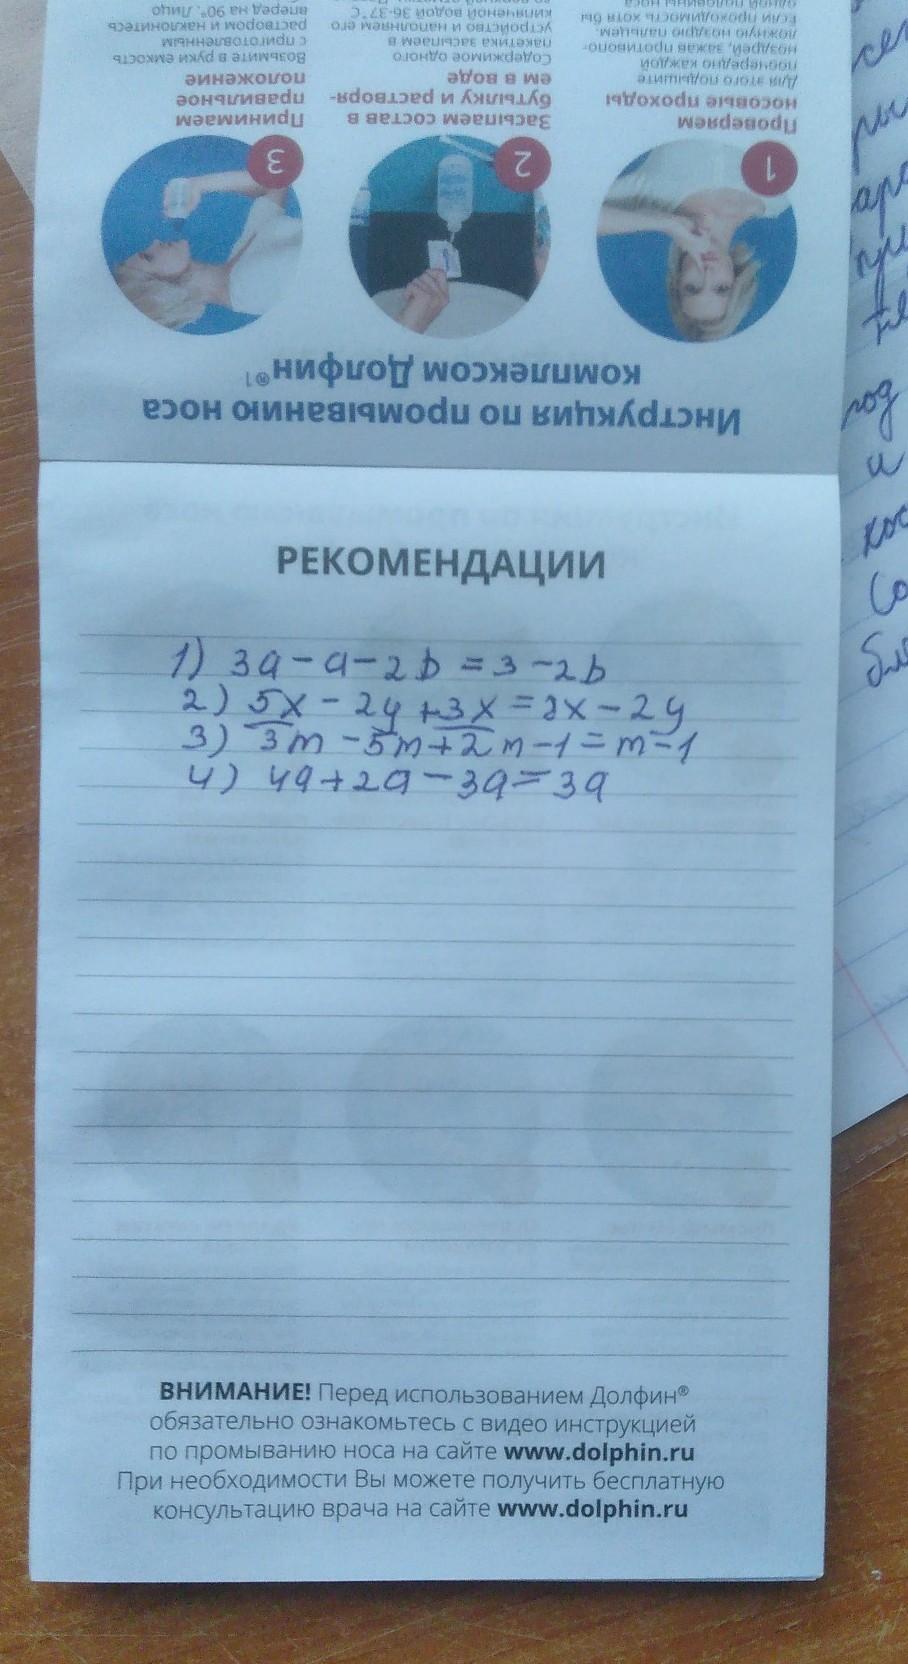 одной половины носа
Если проходимость хотя бы
ложную ноздрю пальцем.
ноздрей, зажав противопо-
поочередно каждой
Для этого подышите
носовые проходы
Проверяем
1
кипяченой водой 36-37°С
устройство и наполняем его
пакетика засыпаем в
Содержимое одного
ем в воде
бутылку и растворя-
Засыпаем состав в
2
вперед на 90°. Лицо
раствором и наклонитесь
с приготовленным
Возьмите в руки емкость
положение
правильное
Принимаем
3
Инструкция по промыванию носа
комплексом Долфин®¹
РЕКОМЕНДАЦИИ
1) 3a-a-2b=3-2b
2) 5x-2y+3x=2x-2y
3) 3m-5m+2m-1=m-1
4) 4a+2a-3a=3a
ВНИМАНИЕ! Перед использованием Долфин®
обязательно ознакомьтесь с видео инструкцией
по промыванию носа на сайте www.dolphin.ru
При необходимости Вы можете получить бесплатную
консультацию врача на сайте www.dolphin.ru
под
и